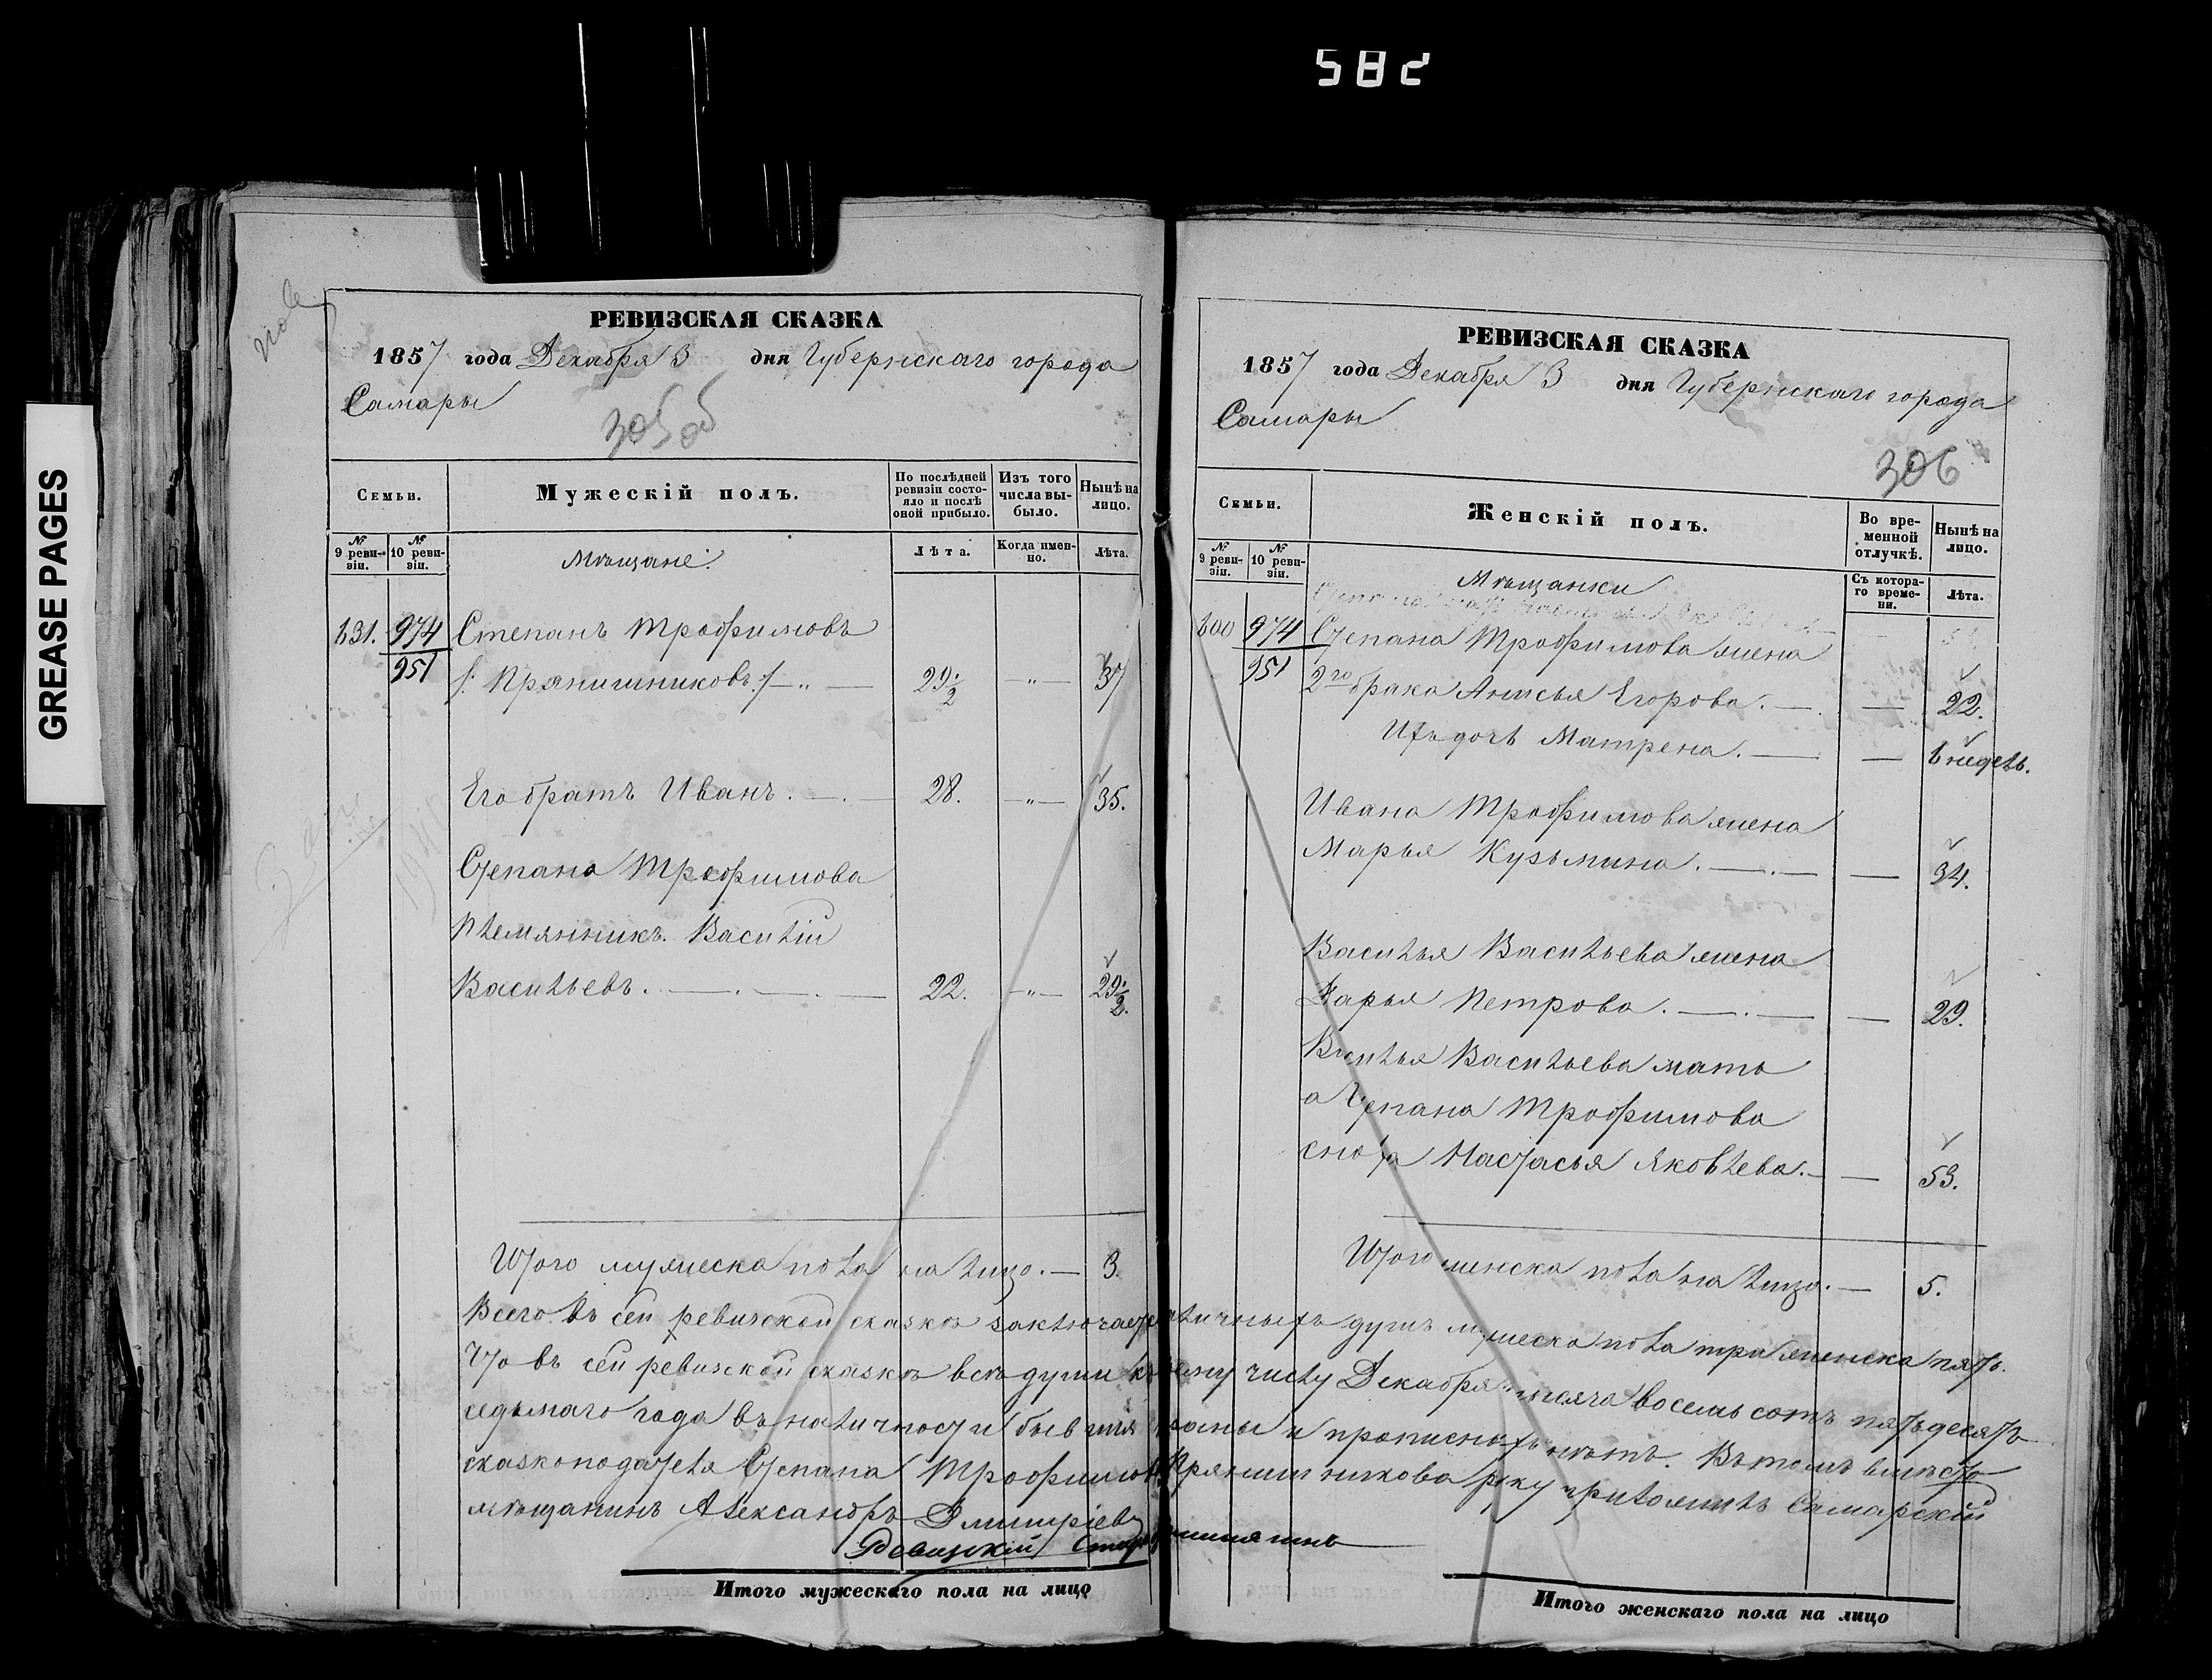 582
GREASE PAGES
РЕВИЗСКАЯ СКАЗКА
1857 года Декабря 3 дня Губернскаго города
Самары
305 об
Семьи.
Мужескій полъ.
По послѣдней ревизіи состояло и послѣ оной прибыло.
Изъ того числа выбыло.
Нынѣ на лицо.
№ 9 ревизіи.
№ 10 ревизіи.
Мѣщане.
Лѣта.
Когда именно.
Лѣта.
631. 974 Степанъ Трофимовъ
951 /: Прянишниковъ :/ — „ — 29½ — „ — 37
Его братъ Иванъ. — . — 28. — „ — 35.
Степана Трофимова
племянникъ Василій
Васильевъ. — . — . — 22. — „ — 29½.
Итого мужеска пола на лицо. — 3.
РЕВИЗСКАЯ СКАЗКА
1857 года Декабря 3 дня Губернскаго города
Самары
306
Семьи.
Женскій полъ.
Во временной отлучкѣ.
Нынѣ на лицо.
№ 9 ревизіи.
№ 10 ревизіи.
Мѣщанки
Съ котораго времени.
Лѣта.
600 974 Степана Трофимова жена
951 2го брака Анисья Егорова. — — 22.
Ихъ дочь Матрена. — — 6 недель.
Ивана Трофимова жена
Марья Кузьмина. — . — — 34.
Василья Васильева жена
Дарья Петрова. — . — — 29.
Василья Васильева мать
а Степана Трофимова
сноха Настасья Яковлева. — — 53.
Итого женска пола на лицо. — 5.
Всего въ сей ревизской сказкѣ заключается наличныхъ душъ мужеска пола три женска пять.
Что въ сей ревизской сказкѣ всѣ души къ сему числу Декабря тысяча восемь сотъ пятьдесятъ
седьмаго года въ наличности бывшія и прописныхъ нѣтъ. Въ томъ вмѣсто
сказкоподателя Степана Трофимова Прянишникова руку приложилъ Самарскій
мѣщанинъ Александръ Дмитріевъ
Ревизскій
Итого мужескаго пола на лицо
Итого женскаго пола на лицо